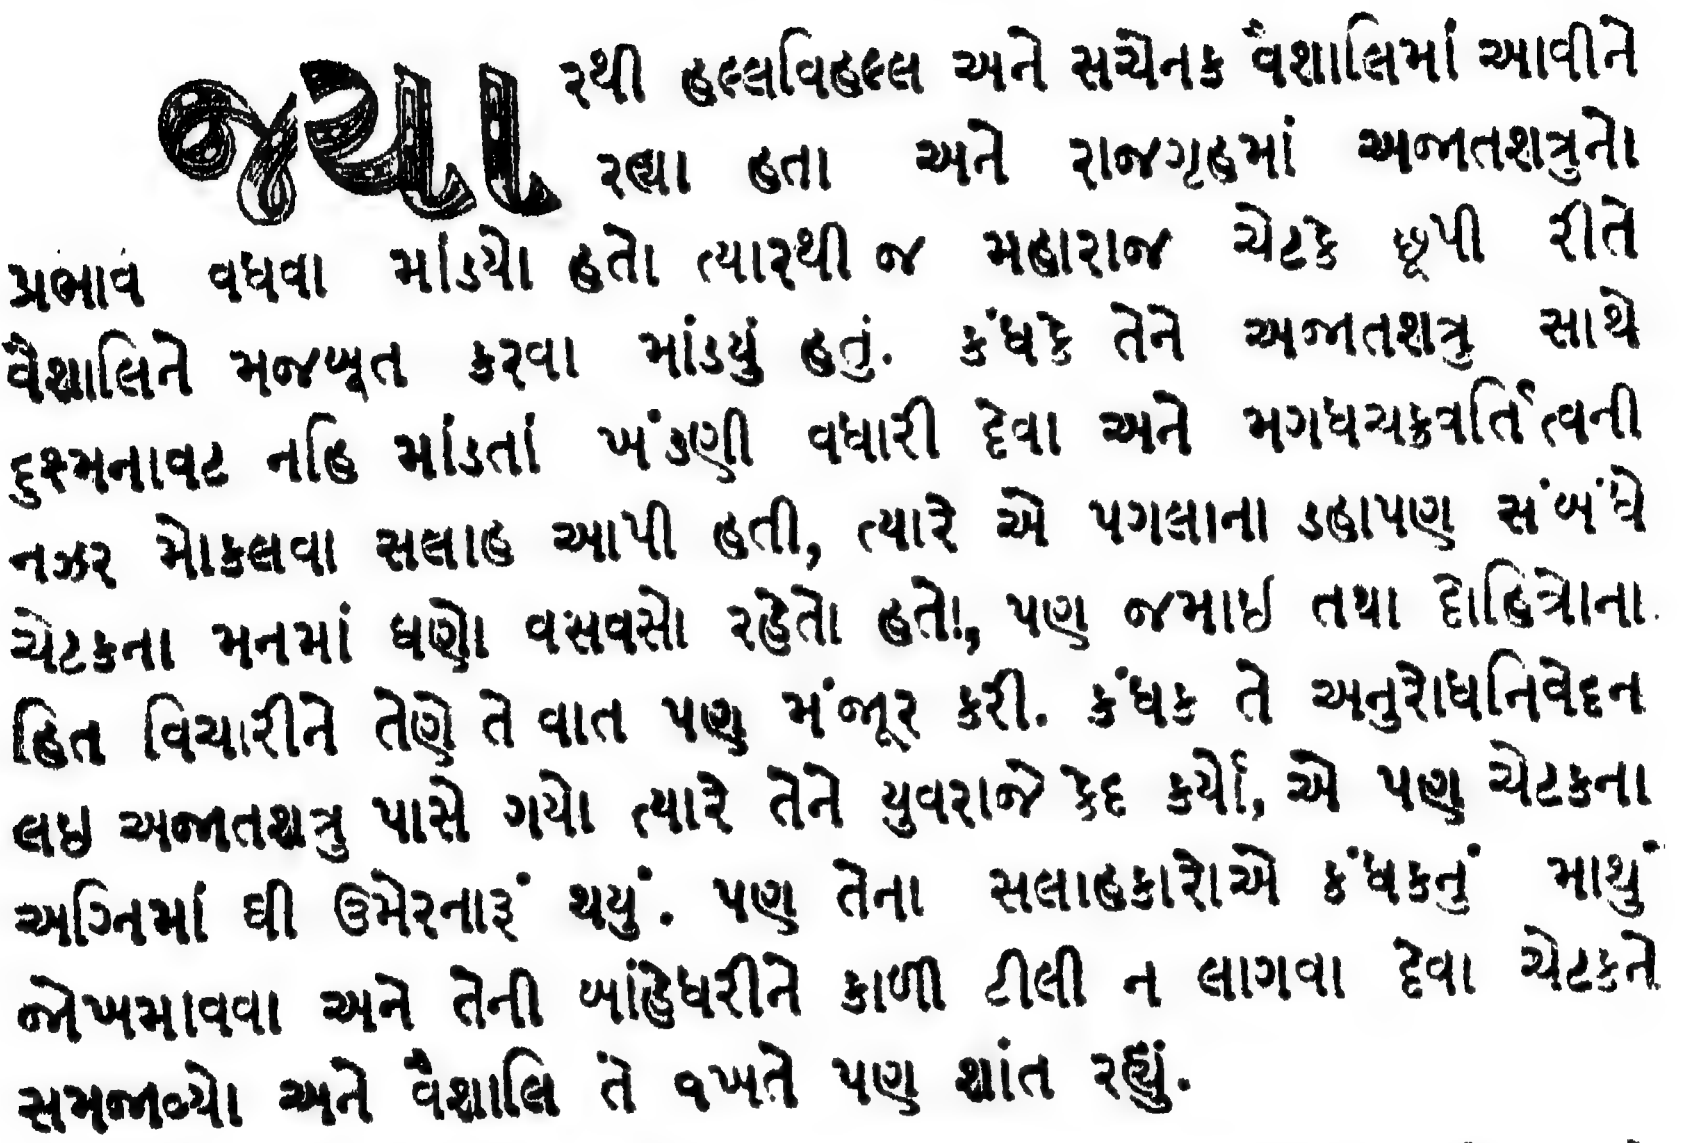 જ્યારથી હલ્લવિહલ્લ અને સચેનક વૈશાલિમાં આવીને
રહ્યા હતા અને રાજગૃહમાં અજાતશત્રુનો
પ્રભાવ વધવા માંડ્યો હતો ત્યારથી જ મહારાજ ચેટકે છૂપી રીતે
વૈશાલિને મજબૂત કરવા માંડ્યું હતું. કંધકે તેને અજાતશત્રુ સાથે
દુશ્મનાવટ નહિ માંડતાં ખંડણી વધારી દેવા અને મગધચક્રવર્તિત્વની
નઝર મોકલવા સલાહ આપી હતી, ત્યારે એ પગલાના ડહાપણ સંબંધે
ચેટકના મનમાં ઘણો વસવસો રહેતો હતો, પણ જમાઇ તથા દોહિત્રોના
હિત વિચારીને તેણે તે વાત પણ મંજૂર કરી. કંધક તે અનુરોધનિવેદન
લઇ અજાતશત્રુ પાસે ગયો ત્યારે તેને યુવરાજે કેદ કર્યો, એ પણ ચેટકના
અગ્નિમાં ઘી ઉમેરનારૂં થયું. પણ તેના સલાહકારોએ કંધકનું માથું
જોખમાવવા અને તેની બાંહેધરીને કાળી ટીલી ન લાગવા દેવા ચેટકને
સમજાવ્યો અને વૈશાલિ તે વખતે પણ શાંત રહ્યું.